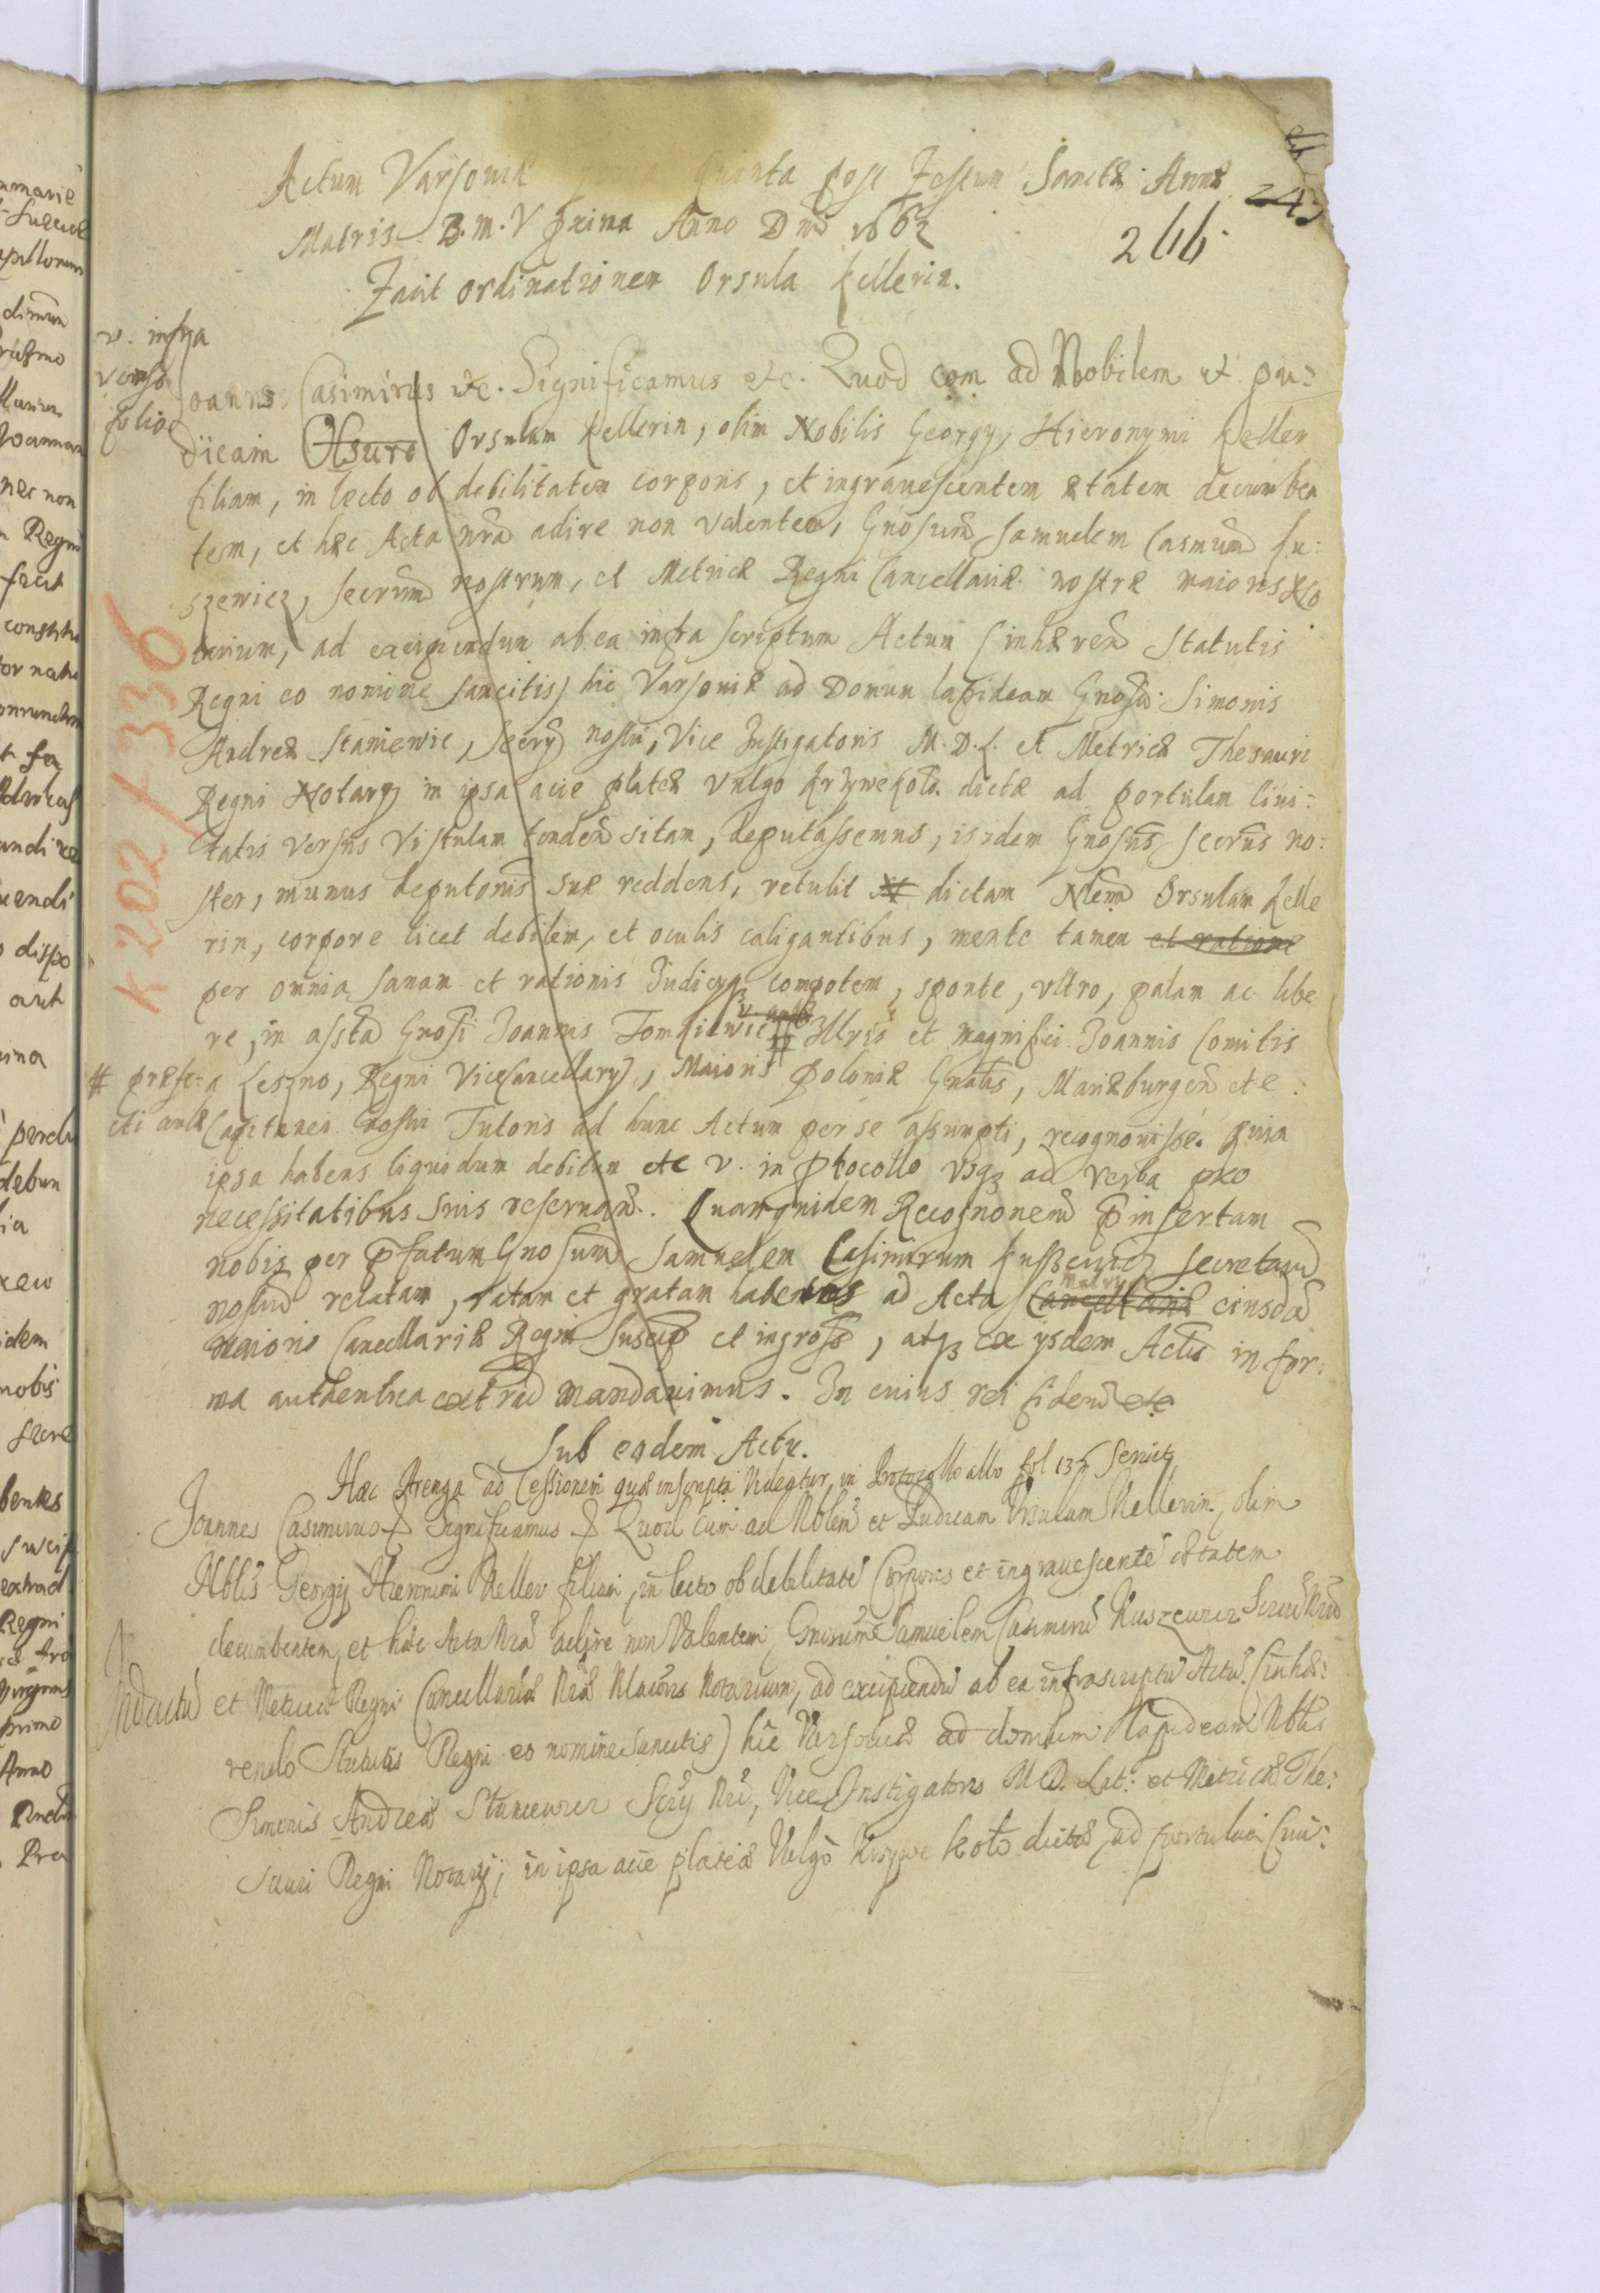 Actum Varsoviæ quinta post Festum Sanctæ Annæ
Matris B. M. V prima Anno Dni 1662
244
Facit ordinationem Orsula Kellerin.
v. infra
verso
folio
Joannes Casimirus etc. Significamus etc. Quod cum ad Nobilem et pu:
dicam Orsulam Kellerin, olim Nobilis Georgy Hieronymi Keller
filiam, in lecto ob debilitatem corporis, et ingravescentem ætatem decumben
tem, et hæc Acta nra adire non valentem, Gnosum Samuelem Casmum Ku:
szewicz, secrum nostrum, et Metricæ Regni Cancellariæ nostræ maioris No
tarium, ad excipiendum ab ea infra scriptum Actum (inhæren Statutis
Regni eo nomine sancitis) hic Varsoviæ ad Domum lapideam Gnosi Simonis
Andreæ Staniewic, secry nostri, Vice Instigatoris M. D. L. et Metricæ Thesauri
Regni Notary in ipsa acie plateæ vulgo Krzywe Koło dictæ ad portulam Civi:
tatis versus Vistulam tenden sitam, deputassemus, is idem Gnosus secrus no:
ster, munus deputonis suæ reddens, retulit dictam Nlem Orsulam Kelle
rin, corpore licet debilem, et oculis caligantibus, mente tamen et ratione
per omnia sanam et rationis Iudicyq compotem, sponte, ultro, palam ac libe
re, in assta Gnosi Joannis Tomkiewic # Illris et magnifici Joannis Comitis
# præfe: a Leszno, Regni Vicecancellary, Maioris Poloniæ Gnalis, Mariæburgen etc:
cti aulæ Capitanei nostri Tutoris ad hunc Actum per se assumpti, recognovisse. Quia
ipsa habens liquidum debitum etc v. in ptocollo usq ad verba pro
necessitatibus suis reservan. Quamquidem Recognonem pinsertam
nobis per pfatum Gnosum Samuelem Casimirum Kuszewicz secretarium
nostrum relatam, ratam et gratam habentes ad Acta Cancellariæ eiusdem
maioris Cancellariæ Regni suscip et ingross, atq ex ysdem Actis in for:
ma authentica extrad mandavimus. In cuius rei fidem etc
Sub eodem Actu.
Hæc Arenga ad Cessionem quæ inscripta videatur in Protocollo albo fol 137
Joannes Casimirus Significamus Quod cum ad Nblem et Pudicam Ursulam Kellerin, olim
Nblis Georgij Hieronimi Keller filiam, in lecto ob debilitate Corporis et ingravescente ætatem
decumbentem, et hæc Acta Nra adire non Valentem, Gnosum Samuelem Casimirum Kuszewicz Secrum Nrum
Inductum et Metricæ Regni Cancellariæ Nræ Maioris Notarium, ad excipiendum ab ea infrascriptum Actum (inhæ:
rendo Statutis Regni eo nomine sancitis) hic Varsoviæ ad domum lapideam Nblis
Simonis Andreæ Staniewicz Secrij Nri, Vice Instigatoris M. D. Lit: et Metricæ The:
sauri Regni Notarij, in ipsa acie plateæ Vulgo Krzywe Koło dictæ, ad portulam Civi:
K 202 / 336